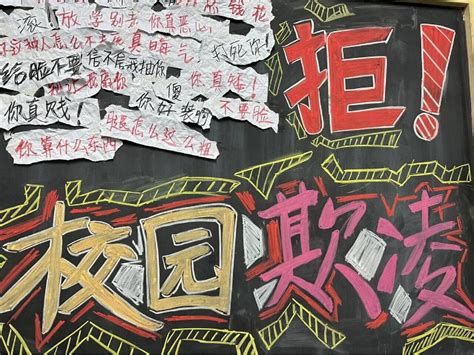 滚！放学别走 你真恶心
钱花
怎么不去死 真晦气！ 打死你！
给脸不要 信不信我抽你
傻 你真矮！
你真贱！ 你好装啊 不要脸
腿怎么这么粗
你算什么东西
拒！
校园欺凌